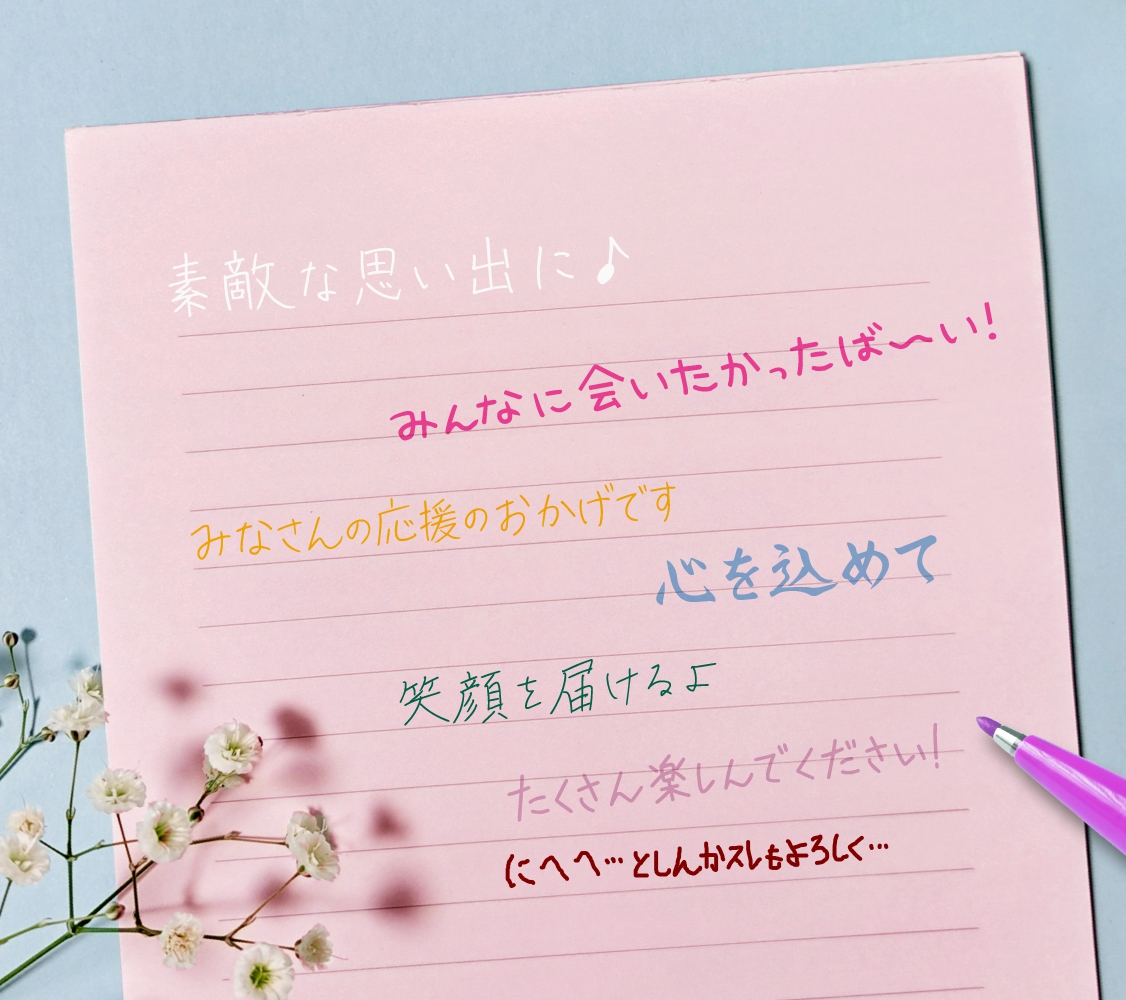 素敵な思い出に♪
みんなに会いたかったば〜い!
みなさんの応援のおかげです
心を込めて
笑顔を届けるよ
たくさん楽しんでください!
にへへ…としんかスレもよろしく…